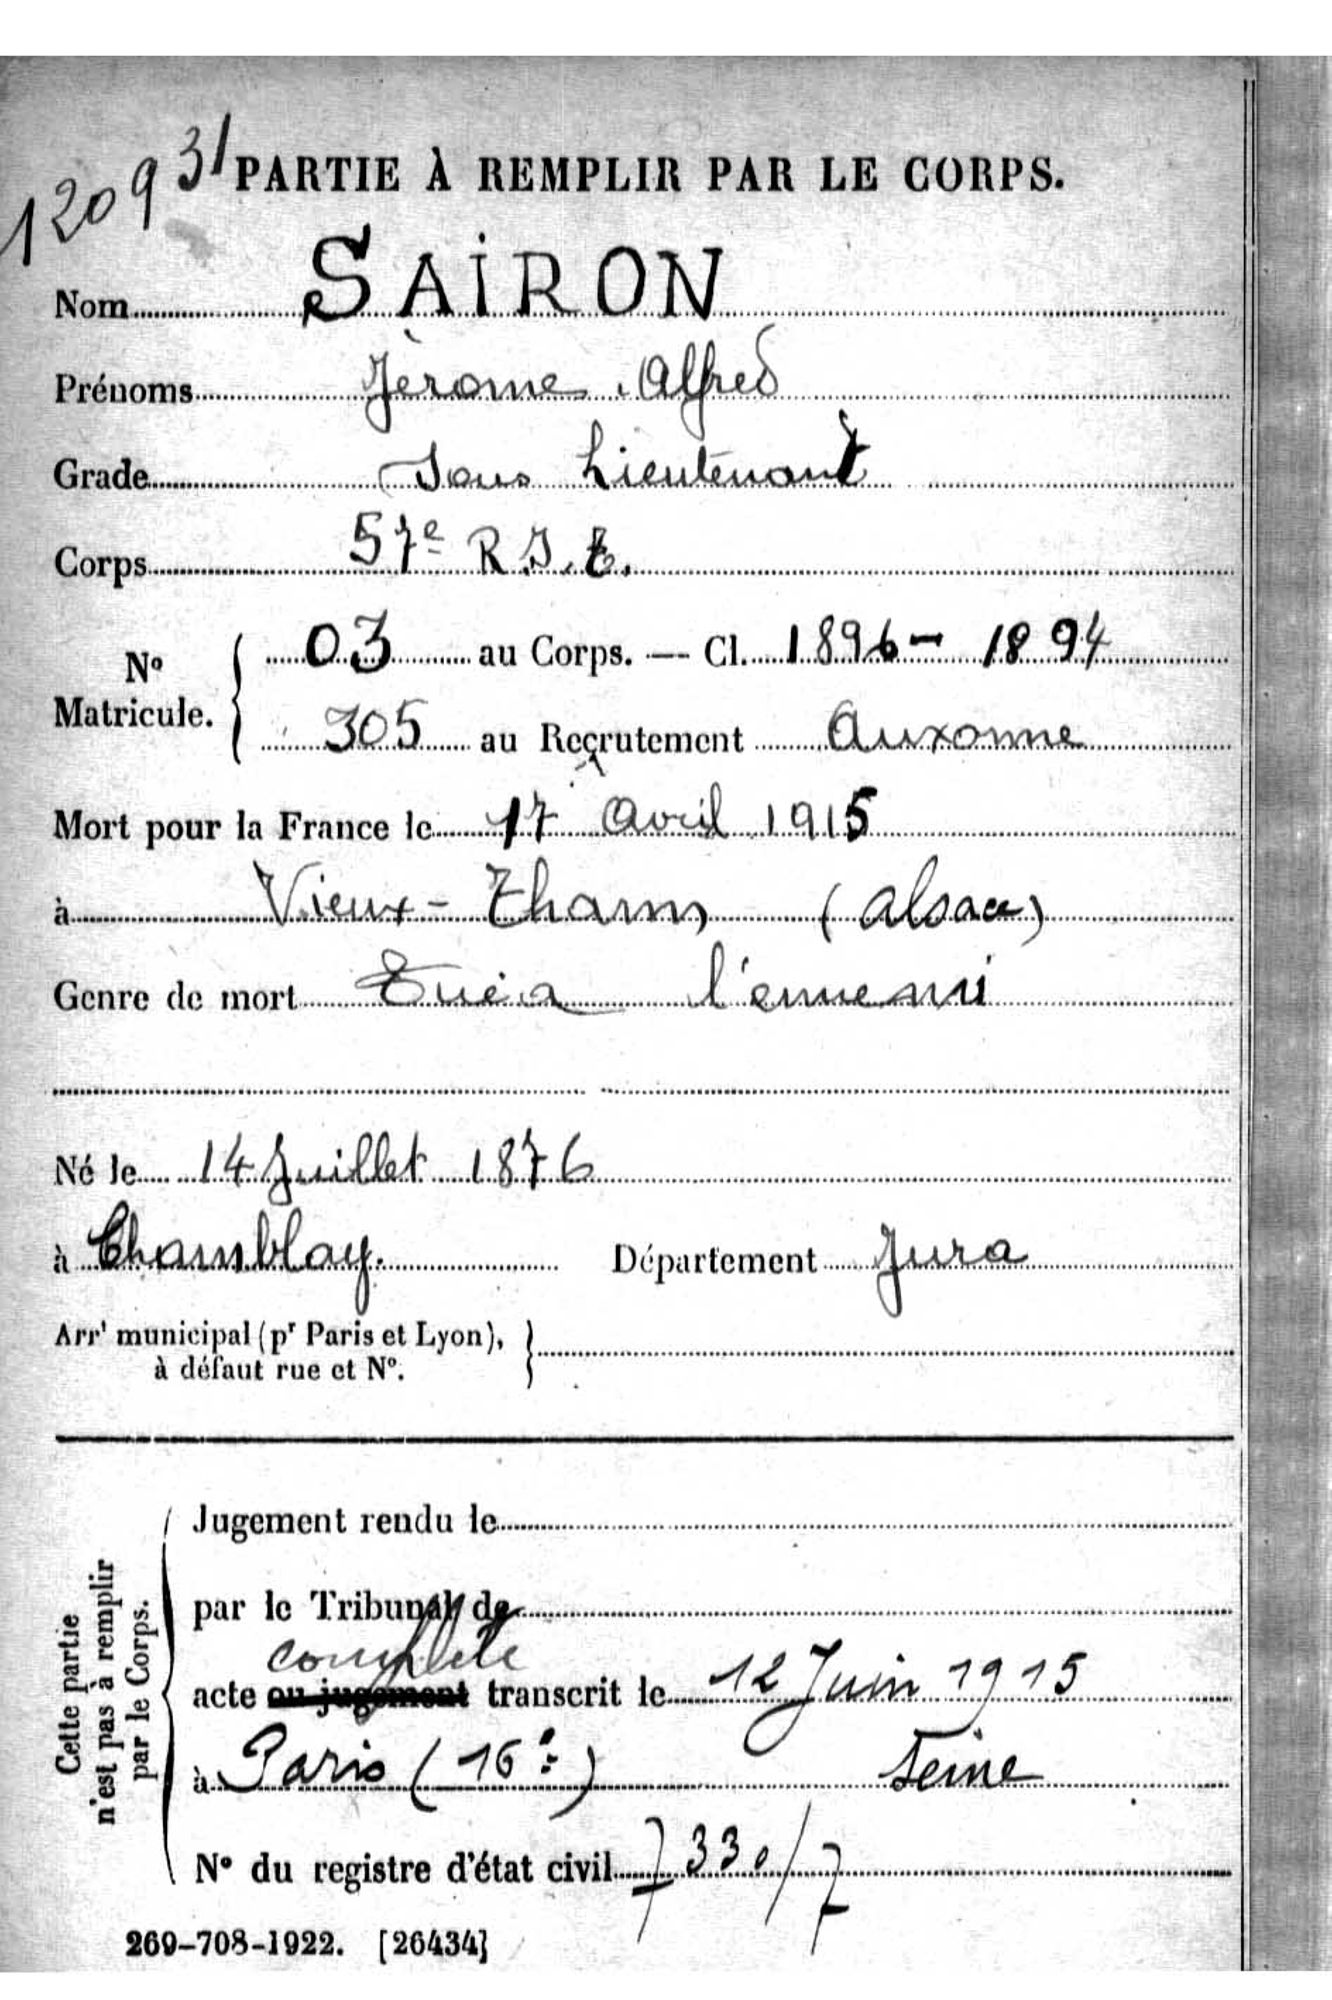 120931
PARTIE À REMPLIR PAR LE CORPS.
Nom SAIRON
Prénoms Jérome Alfred
Grade Sous Lieutenant
Corps 57e R.I.T.
No Matricule. { 03 au Corps. — Cl. 1896 - 1894
305 au Recrutement Auxonne
Mort pour la France le 17 Avril 1915
à Vieux-Thann (Alsace)
Genre de mort Tué a l'ennemi
Né le 14 Juillet 1876
à Chamblay. Département Jura
Arrt municipal (pr Paris et Lyon), }
à défaut rue et No.
Cette partie
n'est pas à remplir
par le Corps.
Jugement rendu le
par le Tribunal de
complète
acte ou jugement transcrit le 12 Juin 1915
à Paris (16e) Seine
No du registre d'état civil 7330/7
269-708-1922. [26434]